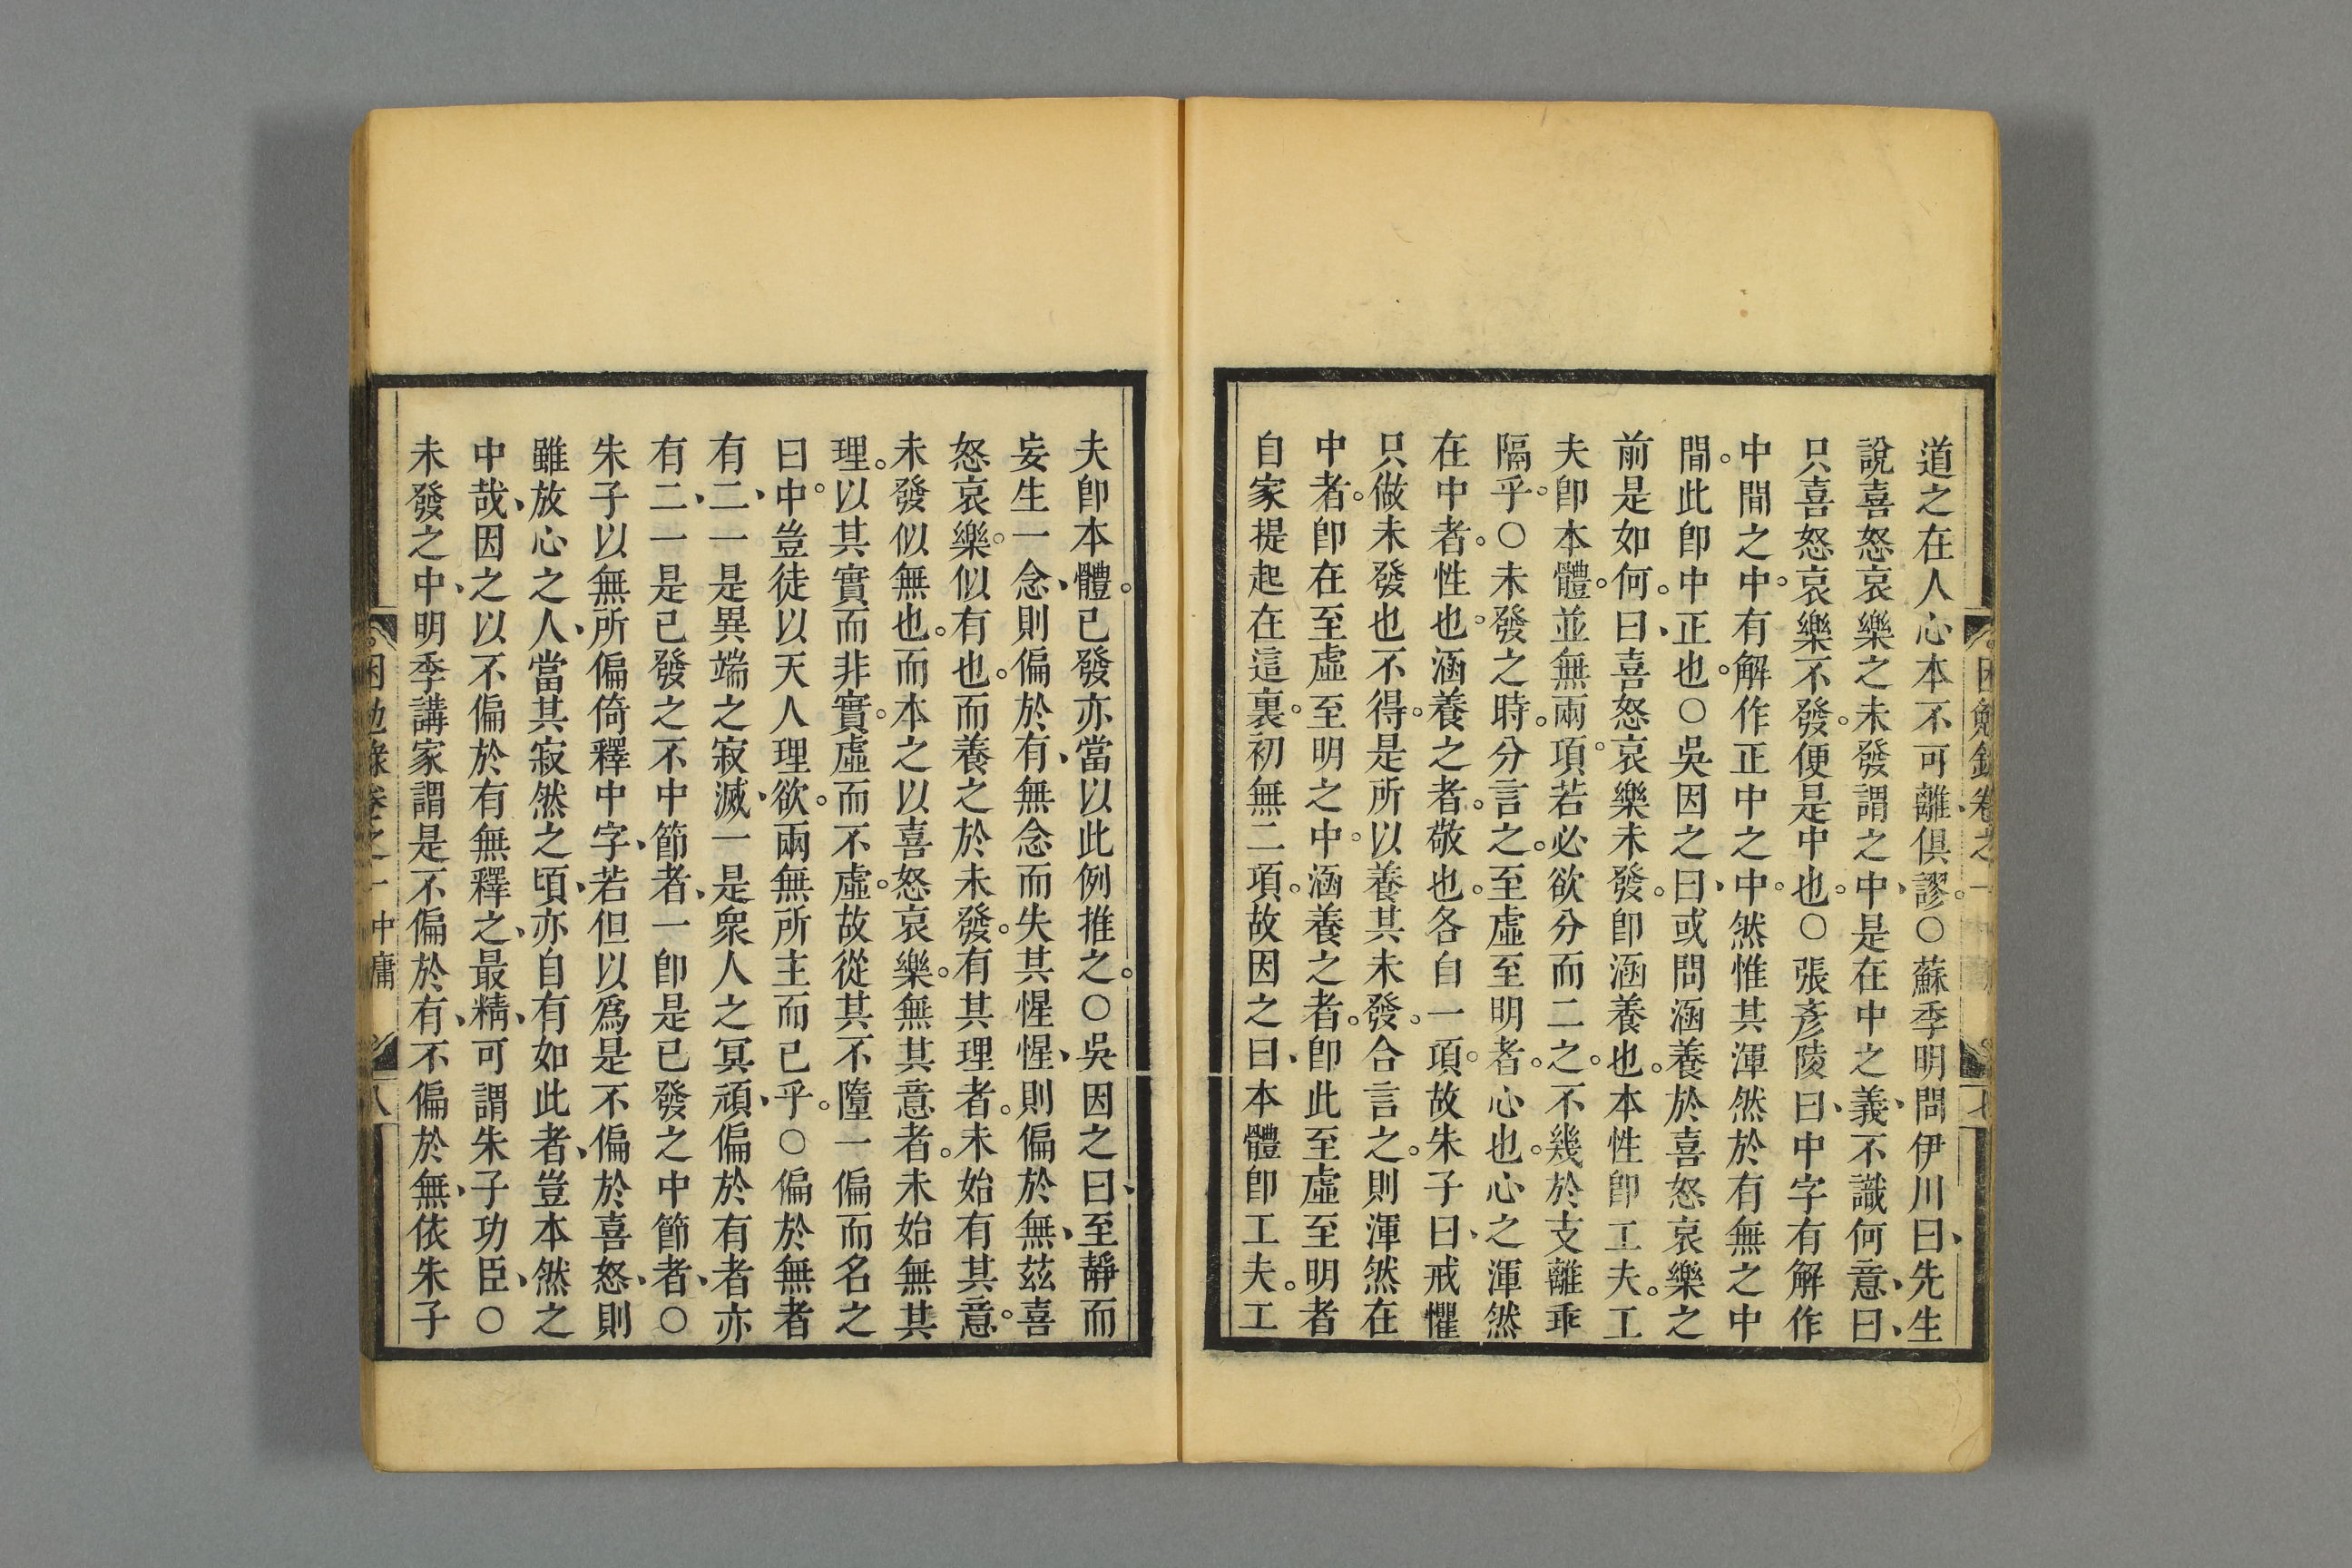 道之在人心本不可離俱謬。○蘇季明問伊川曰、先生
說喜怒哀樂之未發謂之中、是在中之義、不識何意、曰、
只喜怒哀樂不發。便是中也。○張彥陵曰、中字有解作
中間之中。有解作正中之中。然惟其渾然於有無之中
間。此卽中正也。○吳因之曰、或問涵養於喜怒哀樂之
前是如何。曰、喜怒哀樂未發。卽涵養也。本性卽工夫。工
夫卽本體。並無兩項。若必欲分而二之。不幾於支離乖
隔乎。○未發之時。分言之。至虛至明者。心也。心之渾然
在中者。性也。涵養之者。敬也。各自一項。故朱子曰、戒懼
只做未發也不得。是所以養其未發。合言之。則渾然在
中者。卽在至虛至明之中。涵養之者。卽此至虛至明者
自家提起在這裏。初無二項。故因之曰、本體卽工夫。工
困勉錄卷之一
七
夫卽本體。已發亦當以此例推之。○吳因之曰、至靜而
妄生一念、則偏於有、無念而失其惺惺、則偏於無、茲喜
怒哀樂。似有也。而養之於未發。有其理者。未始有其意。
未發似無也。而本之以喜怒哀樂。無其意者。未始無其
理。以其實而非實。虛而不虛。故從其不墮一偏而名之
曰中。豈徒以天人理欲。兩無所主而已乎。○偏於無者
有二、一是異端之寂滅、一是衆人之冥頑、偏於有者亦
有二、一是已發之不中節者、一卽是已發之中節者、○
朱子以無所偏倚釋中字、若但以爲是不偏於喜怒、則
雖放心之人、當其寂然之頃、亦自有如此者、豈本然之
中哉、因之以不偏於有無釋之、最精、可謂朱子功臣、○
未發之中、明季講家謂是不偏於有、不偏於無、依朱子
困勉錄卷之一 中庸
八